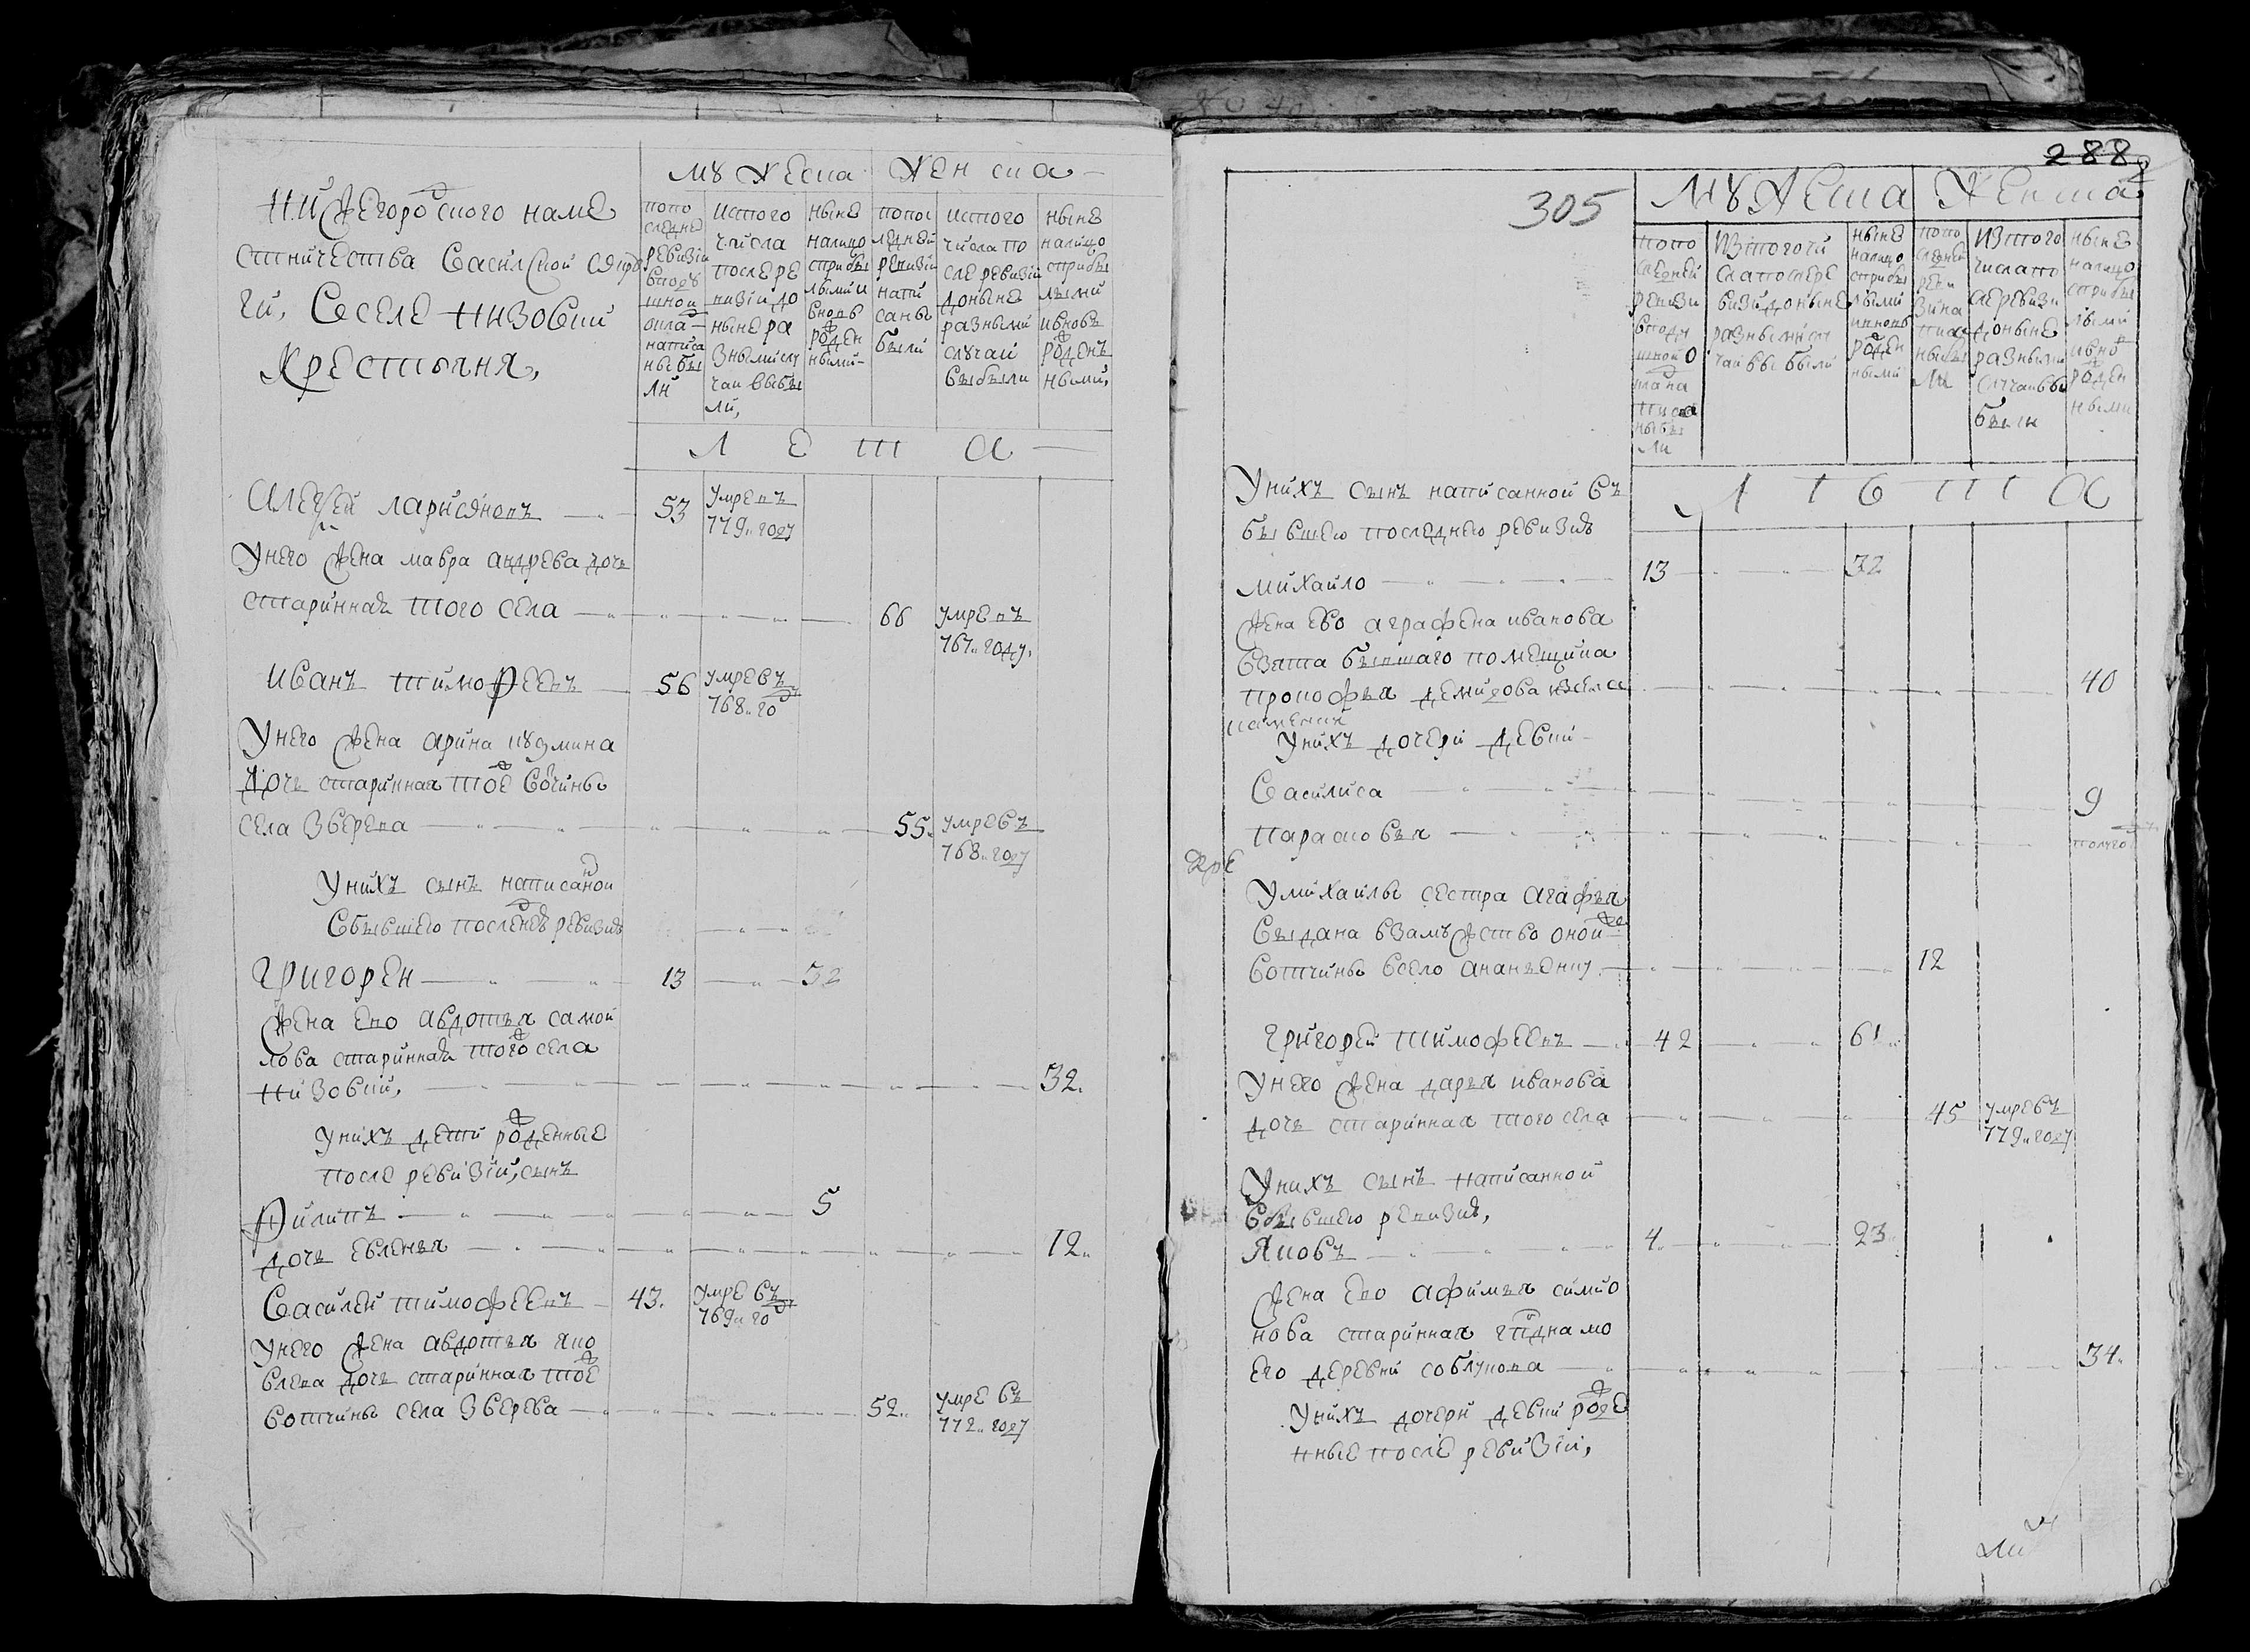 Нижегородского наме
стничества Васильской округи
ги, Вселе низовки
Крестьяня,
мужеска женска
попо следней ревизии вподушной оклад написаны были
истого числа после ревизии доныне разными случаи выбыли,
ныне налицо сприбылыми ивновь рожденными
попоследней ревизии написаны были
истого числа после ревизии доныне разными случаи выбыли
ныне налицо сприбылыми ивновь рожденными,
лета
Алексей Ларионовъ 53 умре въ
779 году
Унего жена мавра андреева дочь
старинная того села 66 умре въ
767 году,
иванъ тимофеевъ 56 умре въ
768 го
Унего жена арина кузмина
дочь старинная тоеж вотчины
села Зверева 55 умре въ
768 году
Унихъ сынъ написаной
Сбывшею последнею ревизию
Григореи 13 32
жена ево авдотья самой
лова стариннаяж того села
низовки, 32
Унихъ дети рожденные
после ревизии, сынъ
Филипъ 5
дочь евленья 12
Василеи тимофеевъ 43 умре въ
769 го
Унего жена авдотья яко
влева дочь стариннаяж тое
вотчины села Зверева 52 умре въ
772 году
288
305
мужеска женска
попоследней ревизии вподушной оклад написаны были
изтого числа после ревизии доныне разными случаи выбыли
ныне налицо сприбылыми ивновь рожденными
попоследней ревизии написаны были
изтого числа после ревизии доныне разными случаи выбыли
ныне налицо сприбылыми ивновь рожденными
лета
Унихъ сынъ написанной въ
бывшею последнею ревизию
михаило 13 32
жена ево аграфена иванова
взята бывшаго помещика
прокофья демидова изсела 40
Унихъ дочери девки
Василиса 9
парасковья полуго
Умихаилы сестра агафья
выдана взамужство оной
вотчины всело ананьену 12
григореи тимофеевъ 42 61
Унего жена дарья иванова
дочь стариннаяж того села 45 умре въ
779 году
Унихъ сынъ написанной
вбывшею ревизию,
Яковъ 4 23
жена ево афимья симио
нова стариннаяж гпдна мо
его деревни соблукова 34
Унихъ дочери девки рожде
нные после ревизии,